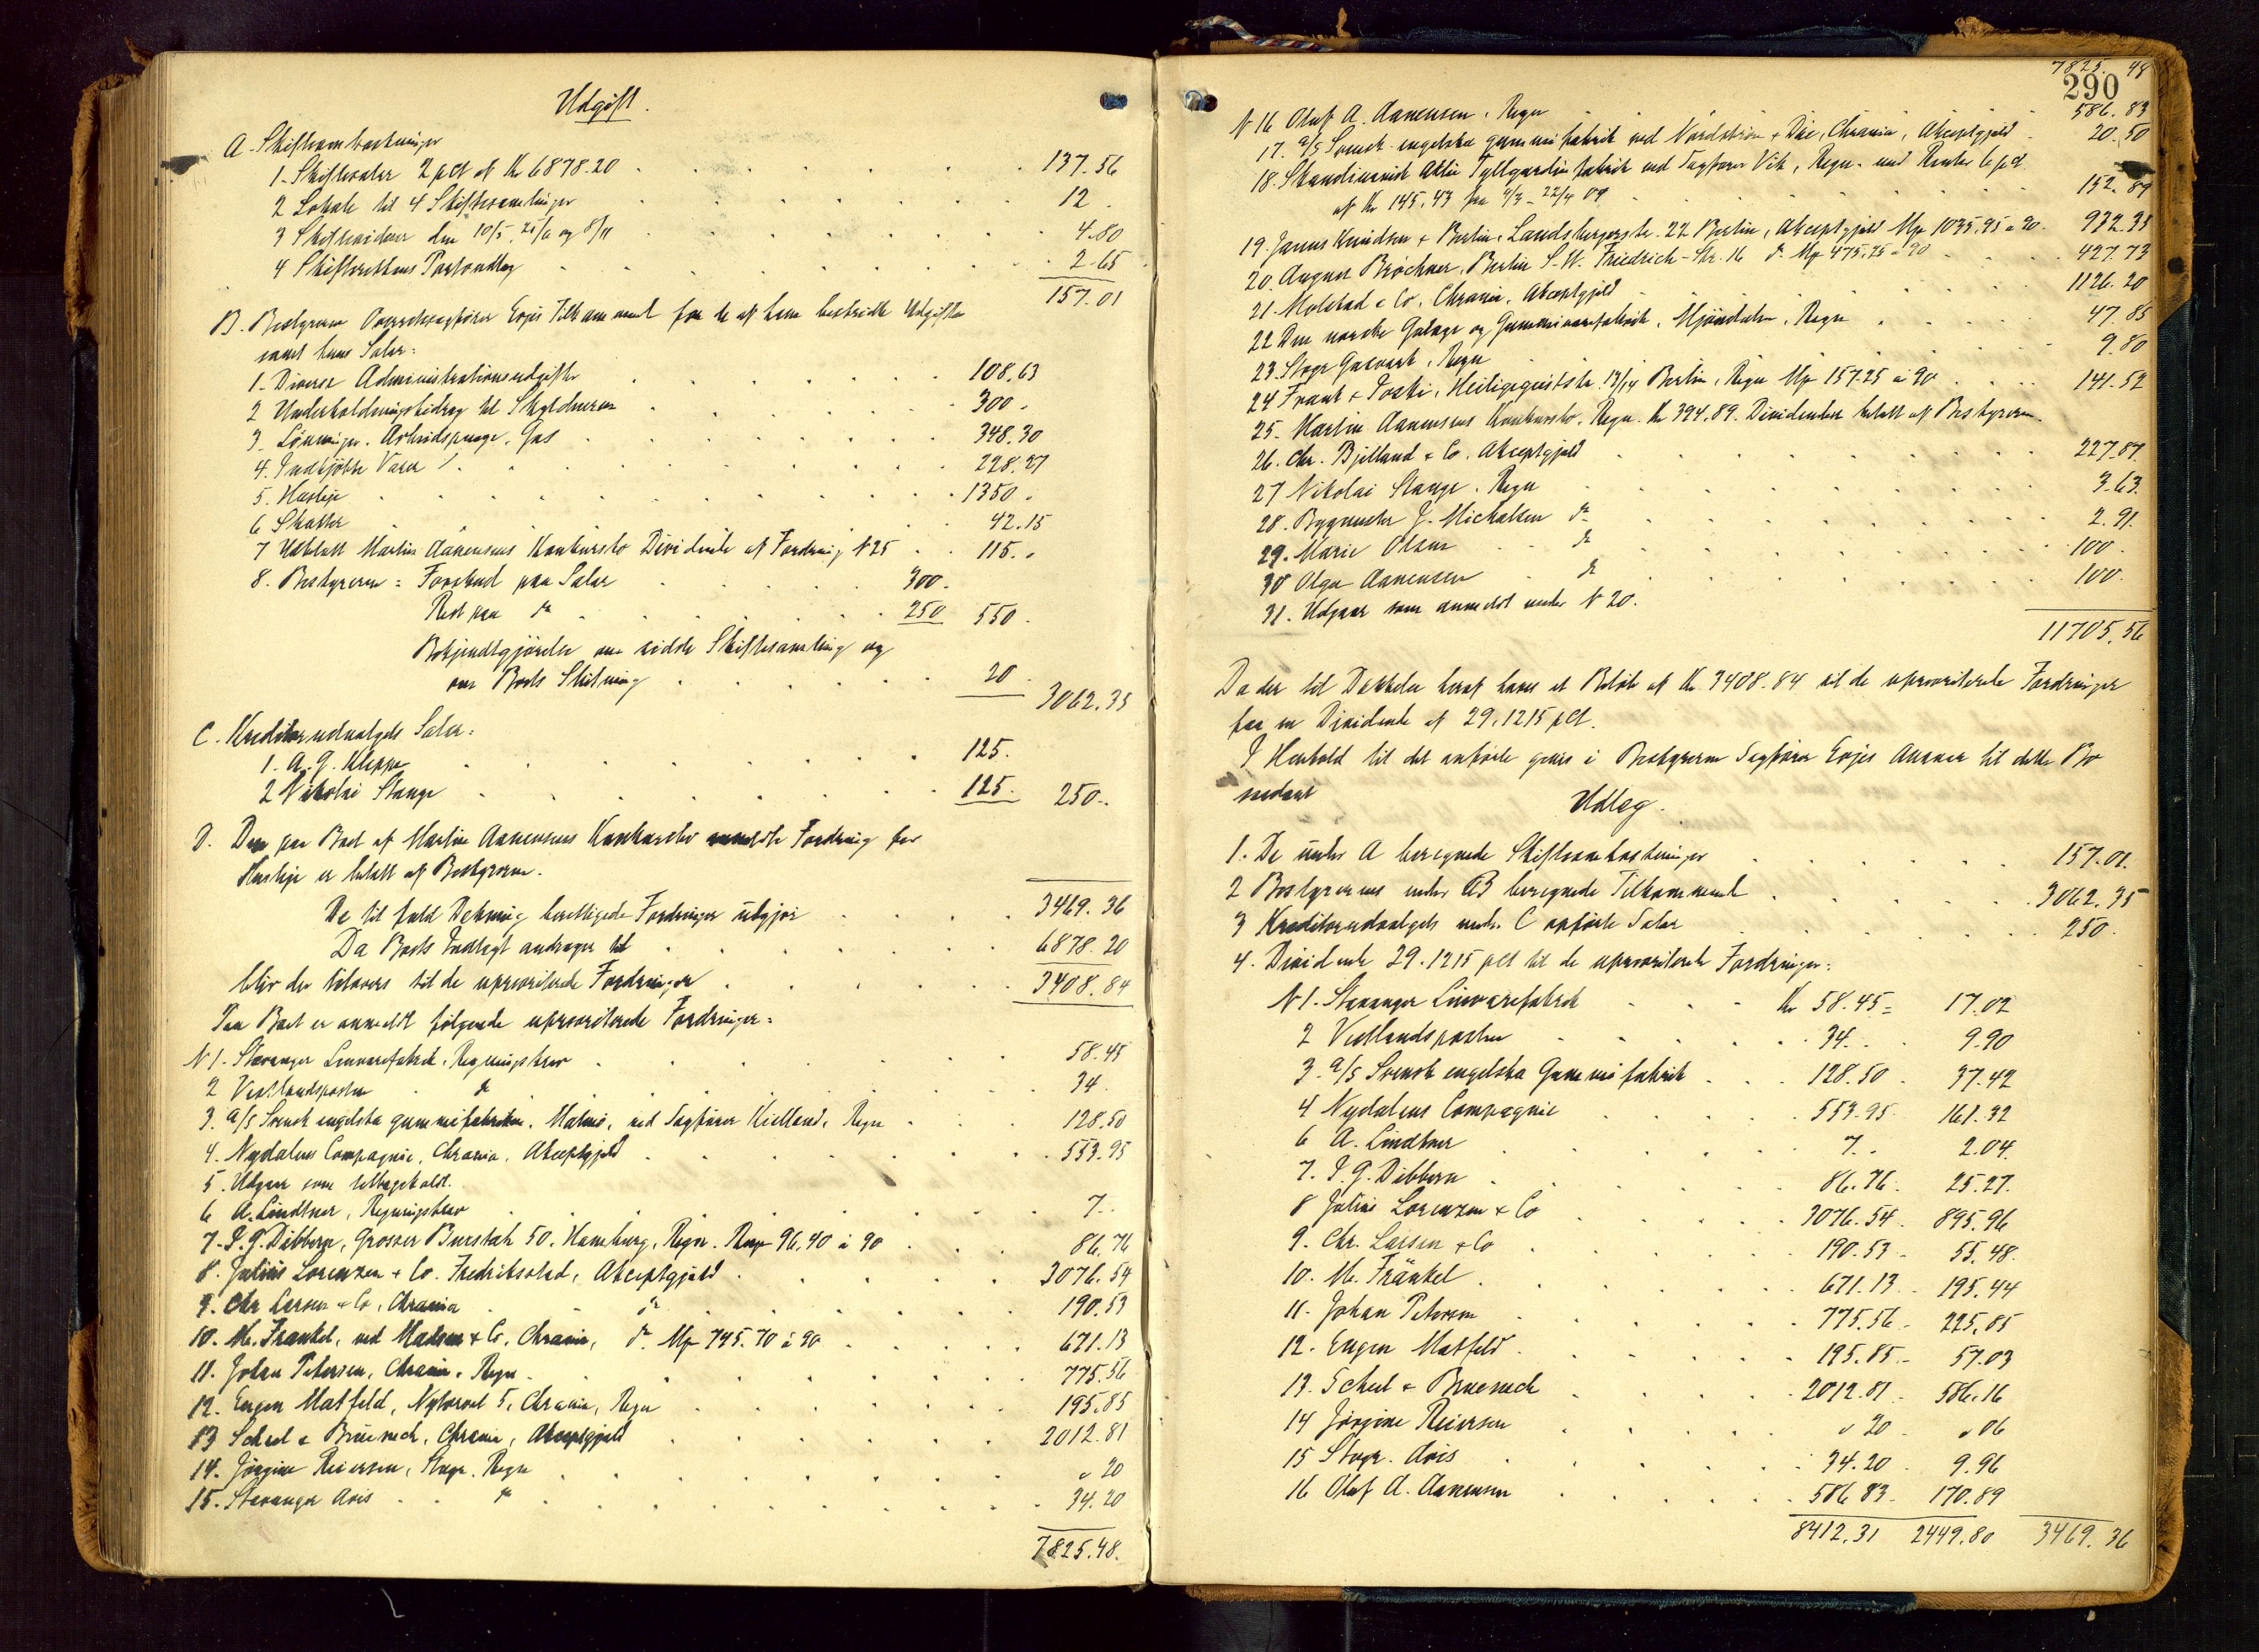 Udgift.
A. Skifteomkostninger
1. Skiftesalær 2 pct af Kr 6878.20 137.56
2 Lokale til 4 Skiftesamlinger 12.
3 Skiftevidner den 10/5, 25/6 og 8/11 4.80
4 Skifterettens Portoudlæg 2.65
157.01
B. Bestyreren Overretssagfører Eojes Tilkommende for de af ham bestridte Udgifter
samt hans Salær:
1. Diverse Administrationsudgifter 108.63
2 Underholdningsbidrag til Skyldneren 300.
3. Lønninger. Arbeidspenge. Gas 348.30
4. Indkjøbte Varer 228.27
5. Husleje 1350.
6 Skatter 42.15
7 Udbetalt Martin Aanensens Konkursbo Dividende af Fordring N 25 115.
8. Bestyreren: Forskud paa Salær 300.
Rest paa do 250 550.
Bekjendtgjørelse om sidste Skiftesamling og
om Boets Slutning 20.
3062.35
C. Kreditorudvalgets Salær:
1. A. G. Kleppe 125.
2 Nikolai Stange 125. 250.
D. Den paa Boet af Martin Aanensens Konkursbo anmeldte Fordring for
Husleje er betalt af Bestyreren.
De til fuld Dekning berettigede Fordringer udgjør 3469.36
Da Boets Indtægt andrager til 6878.20
bliver der tilovers til de uprioriterede Fordringer 3408.84
Paa Boet er anmeldt følgende uprioriterede Fordringer:
N 1. Stavanger Linvarefabrik. Regningskrav 58.45
2 Vestlandsposten do 34.
3. A/S Svensk engelska gummifabriken. Malmö, ved Sagfører Kielland, Regn 128.50
4. Nydalens Compagnie, Chrania, Akceptgjeld 553.95
5. Udgaar som tilbagekaldt.
6 A. Lindtner, Regningskrav 7.
7. P. G. Dibbern, Grosser Burstah 50. Hamburg, Regn. Rmp 96,40 à 90 86.76
8. Julius Lorenzen & Co. Fredriksstad, Akceptgjeld 3076.54
9. Chr Larsen & Co, Chrania do 190.53
10. M. Fränkel, ved Madsen & Co. Chrania, do Mp 745.70 à 90 671.13
11. Johan Petersen, Chrania. Regn 775.56
12. Eugen Matfeld, Nytorvet 5, Chrania, Regn 195.85
13 Scheel & Bruenech, Chrania, Akceptgjeld 2012.81
14. Jørgine Reiersen, Stvgr. Regn " 20
15. Stavanger Avis do 34.20
7825.48.
290
7825.48
N 16 Oluf A. Aanensen, Regn 586.83
17. A/S Svensk-engelska gummifabrik ved Nordström & Due, Chrania, Akceptgjeld 20.50
18. Skandinavisk Aktie Tyllgardinfabrik ved Sagfører Vik, Regn. med Renter 6 pct
af Kr 145.43 fra 9/3 - 22/4 09 152.89
19. Januus Knudsen & Berlin, Landsbergerstr. 22 Berlin, Akceptgjeld Mp 1035.95 à 90. 932.35
20. August Bröchner, Berlin S. W. Friedrich-Str. 16 do Mp 475.25 à 90 427.73
21. Molstad & Co, Chrania, Akceptgjeld 1126.20
22 Den norske Galage og Gummivarefabrik, Mjøndalen, Regn 47.85
23 Stvgr Gasverk, Regn 9.80
24 Frank & Toski, Heiligegeiststr. 13/14 Berlin, Regn Mp 157.25 à 90 141.52
25. Martin Aanensens Konkursbo, Regn. Kr 394.89. Dividenden betalt af Bestyreren
26. Chr. Bjelland & Co. Akceptgjeld 227.87.
27 Nikolai Stange. Regn 3.63.
28. Bygmester J. Michalsen do 2.91.
29. Marie Olsen do 100.
30 Olga Aanensen do 100.
31. Udgaar som anmeldt under N 20.
11705.56
Da der til Dækkelse heraf haves et Beløb af Kr 3408.84 vil de uprioriterede Fordringer
faa en Dividende af 29,1215 pct.
I Henhold til det anførte gives i Bestyreren Sagfører Eojes Ansvar til dette Bo
saadant
Udlæg.
1. De under A beregnede Skifteomkostninger 157.01.
2 Bestyrerens under B beregnede Tilkommende 3062.35
3 Kreditorudvalgets under C anførte Salær 250.
4. Dividende 29.1215 pct til de uprioriterede Fordringer:
N 1. Stavanger Linvarefabrik Kr 58.45 = 17.02
2 Vestlandsposten 34. 9.90
3. A/S Svensk engelska Gummifabrik 128.50 37.42
4 Nydalens Compagnie 553.95 161.32
6 A. Lindtner 7. 2.04.
7. P. G. Dibbern 86.76. 25.27.
8 Julius Lorenzen & Co 3076.54 895.96
9. Chr. Larsen & Co 190.53 55.48.
10. M. Fränkel 671.13 195.44
11. Johan Petersen 775.56 225.85
12. Eugen Matfeld 195.85 57.03
13. Scheel & Bruenech 2012.81 586.16
14 Jørgine Reiersen " 20 " 06
15 Stvgr. Avis 34.20 9.96
16 Oluf A. Aanensen 586.83 170.89
8412.31 2449.80 3469.36